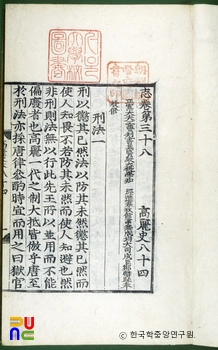 志卷第三十八　高麗史八十四
正憲大夫工曹判書集賢殿大提學知 經筵春秋館事兼成均大司成臣鄭麟趾奉
敎修
刑法一
刑以懲其已然法以防其未然懲其已然而
使人知畏不若防其未然而使人知避也然
非刑則法無以行此先王所以並用而不能
偏廢者也高麗一代之制大抵皆倣乎唐至
於刑法亦採唐律參酌時宜而用之曰獄官
ⓒ 한국학중앙연구원